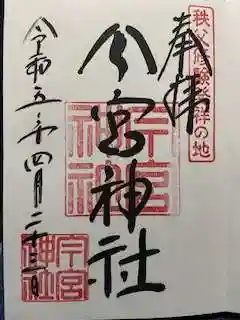 秩父修験発祥の地
奉拝
今宮神社
今宮神社
令和五年四月二十三日
今宮神社